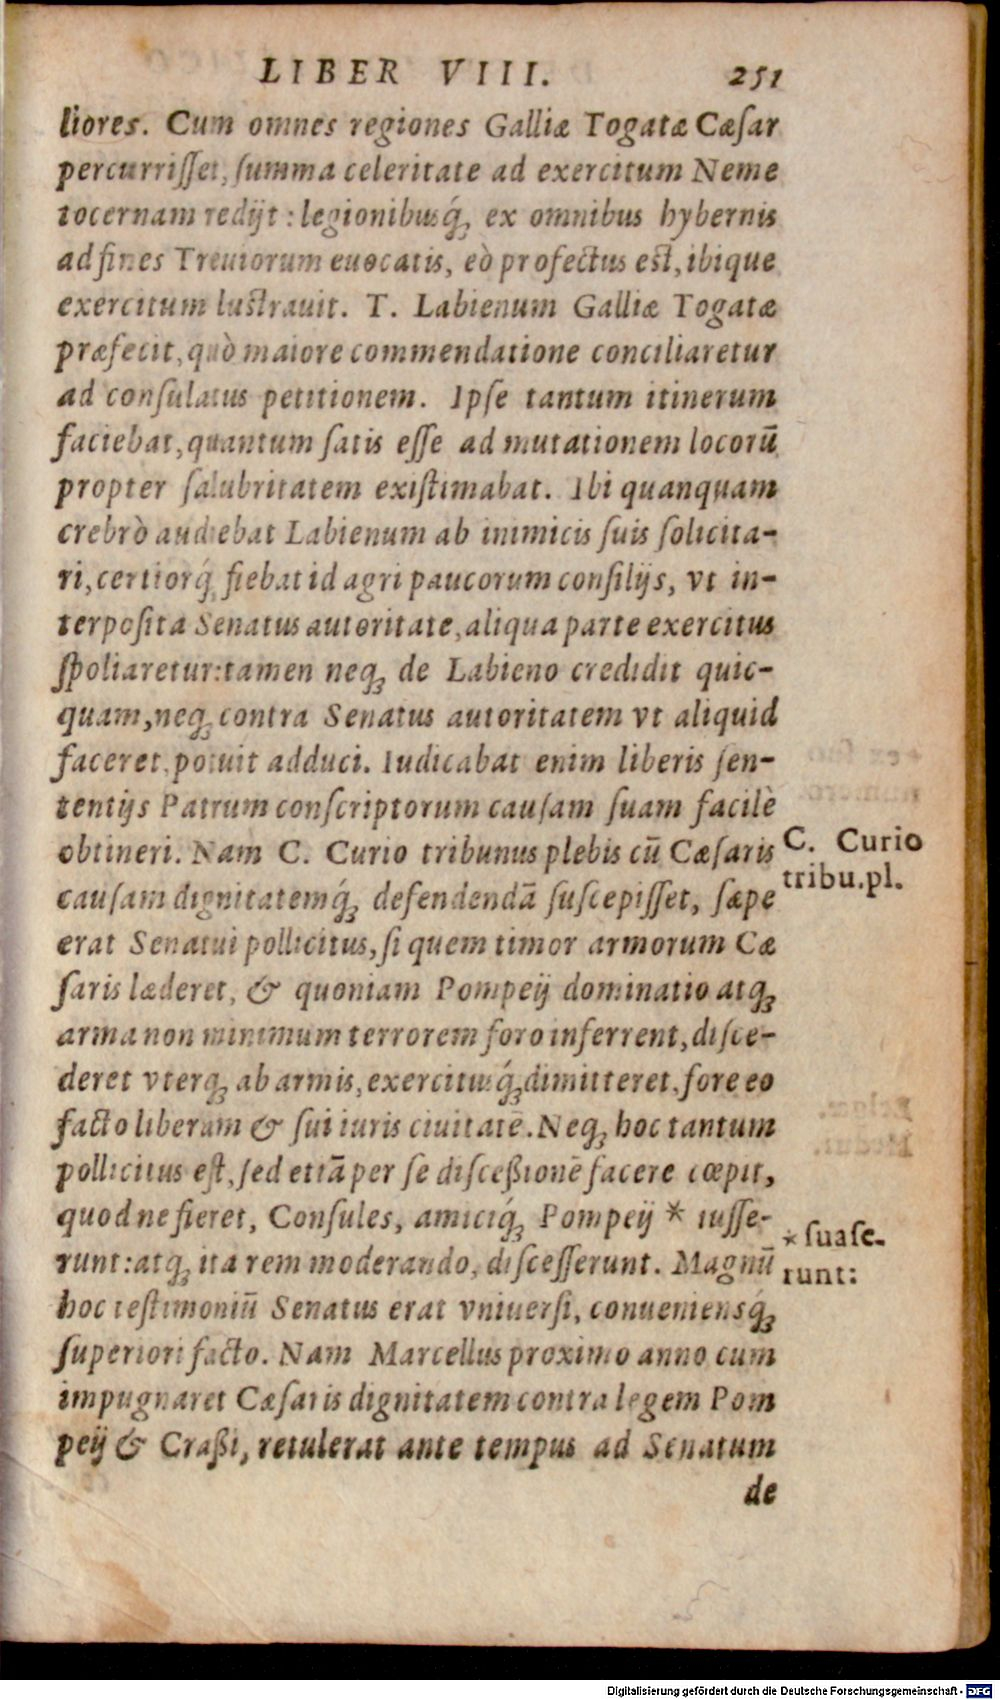 LIBER VIII. 251
liores. Cum omnes regiones Galliæ Togatæ Cæſar
percurriſſet, ſumma celeritate ad exercitum Neme
tocernam redijt: legionibusq́ꝫ ex omnibus hybernis
ad fines Treuiorum euocatis, eò profectus eſt, ibique
exercitum luſtrauit. T. Labienum Galliæ Togatæ
præfecit, quò maiore commendatione conciliaretur
ad conſulatus petitionem. Ipſe tantum itinerum
faciebat, quantum ſatis eſſe ad mutationem locorū
propter ſalubritatem exiſtimabat. Ibi quanquam
crebrò audiebat Labienum ab inimicis ſuis ſolicita-
ri, certiorq́ꝫ fiebat id agri paucorum conſilijs, vt in-
terpoſita Senatus autoritate, aliqua parte exercitus
ſpoliaretur: tamen neqꝫ de Labieno credidit quic-
quam, neqꝫ contra Senatus autoritatem vt aliquid
faceret, potuit adduci. Iudicabat enim liberis ſen-
tentijs Patrum conſcriptorum cauſam ſuam facilè
obtineri. Nam C. Curio tribunus plebis cū Cæſaris
cauſam dignitatemq́ꝫ defendendā ſuſcepiſſet, ſæpe
erat Senatui pollicitus, ſi quem timor armorum Cæ
ſaris læderet, & quoniam Pompeij dominatio atqꝫ
arma non minimum terrorem foro inferrent, diſce-
deret vterqꝫ ab armis, exercitusq́ꝫ dimitteret, fore eo
facto liberam & ſui iuris ciuitatē. Neqꝫ hoc tantum
pollicitus eſt, ſed etiā per ſe diſceßionē facere cœpit,
quod ne fieret, Conſules, amiciq́ꝫ Pompeij * iuſſe-
runt: atqꝫ ita rem moderando, diſceſſerunt. Magnū
hoc teſtimoniū Senatus erat vniuerſi, conueniensq́ꝫ
ſuperiori facto. Nam Marcellus proximo anno cum
impugnaret Cæſaris dignitatem contra legem Pom
peij & Craßi, retulerat ante tempus ad Senatum
de
C. Curio
tribu.pl.
* ſuaſe-
runt:
Digitalisierung gefördert durch die Deutsche Forschungsgemeinschaft - DFG